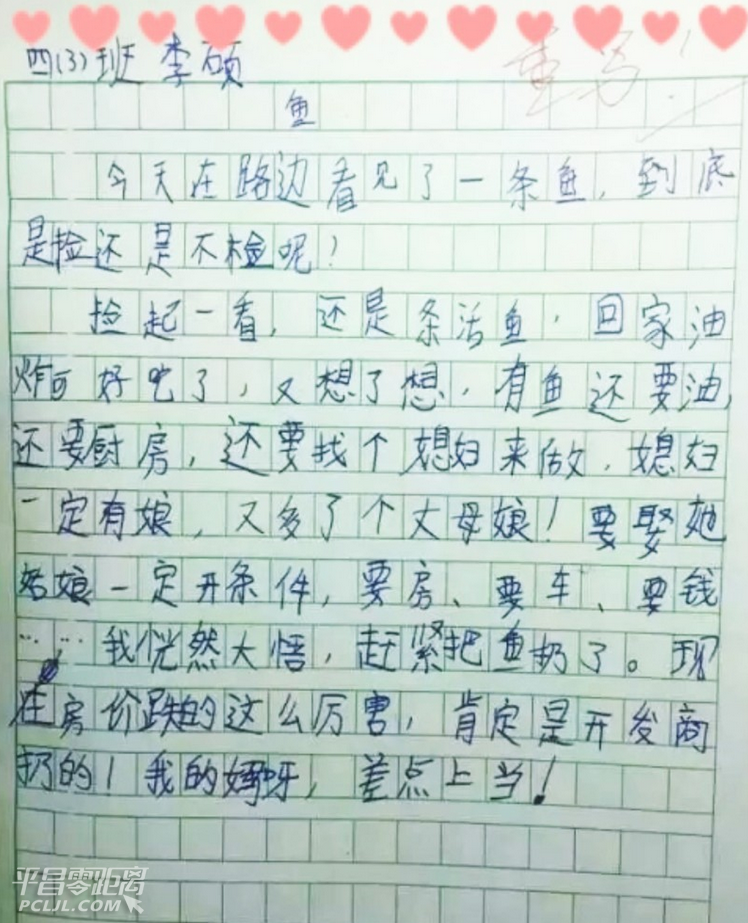 四(3)班 李硕
重写!
鱼
今天在路边看见了一条鱼,到底
是捡还是不检呢!
捡起一看,还是条活鱼,回家油
炸可好吃了,又想了想,有鱼还要油,
还要厨房,还要找个媳妇来做,媳妇
一定有娘,又多了个丈母娘!要娶她
姑娘一定开条件,要房、要车、要钱
……我恍然大悟,赶紧把鱼扔了。现
在房价跌的这么厉害,肯定是开发商
扔的!我的妈呀,差点上当!
平昌零距离
PCLJL.COM